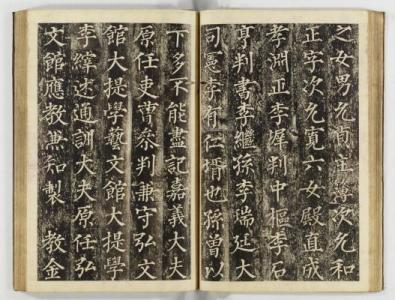 之女男允貞主簿次允和
正字次允寬六女殿直成
孝淵正李墀判中樞李石
亨判書李繼孫李瑞延大
司憲李有仁壻也孫曾以
下多不能盡記嘉義大夫
原任吏曹參判兼守弘文
館大提學藝文館大提學
李縡述通訓大夫原任弘
文館應教兼知製 教金